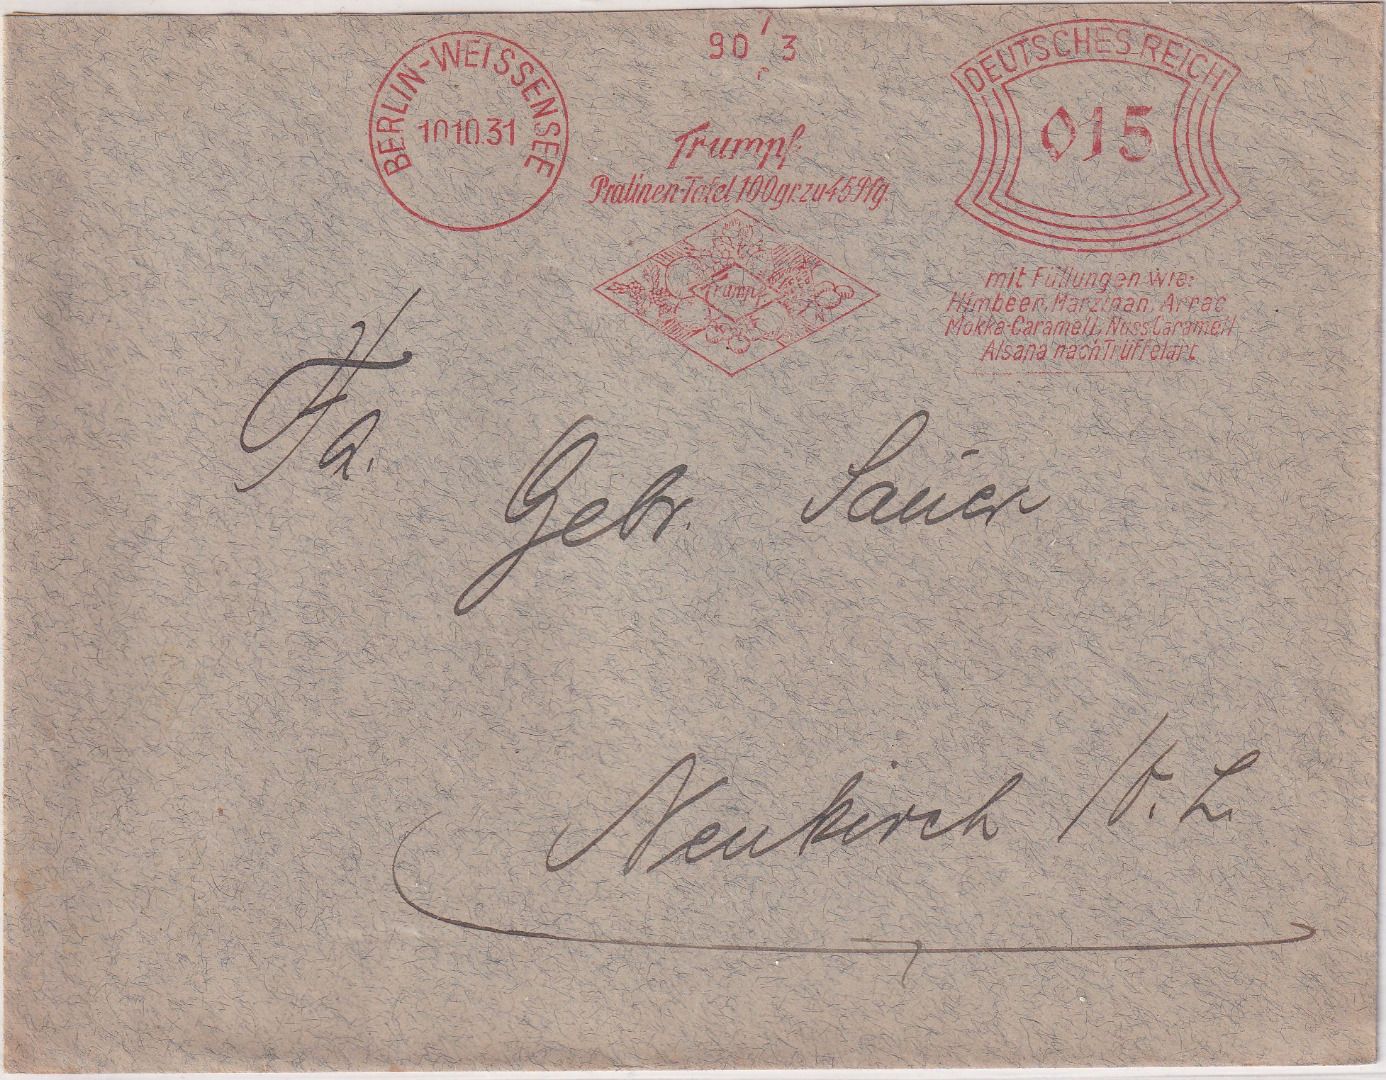 BERLIN-WEISSENSEE
10.10.31
90 3
Trumpf
Pralinen-Tafel 100gr. zu 45 Pfg.
Trumpf
DEUTSCHES REICH
015
mit Füllungen wie:
Himbeer, Marzipan, Arrac
Mokka-Caramell, Nuss Caramell
Alsana nach Trüffelart
Fa.
Gebr. Sauer
Neukirch /O.L.